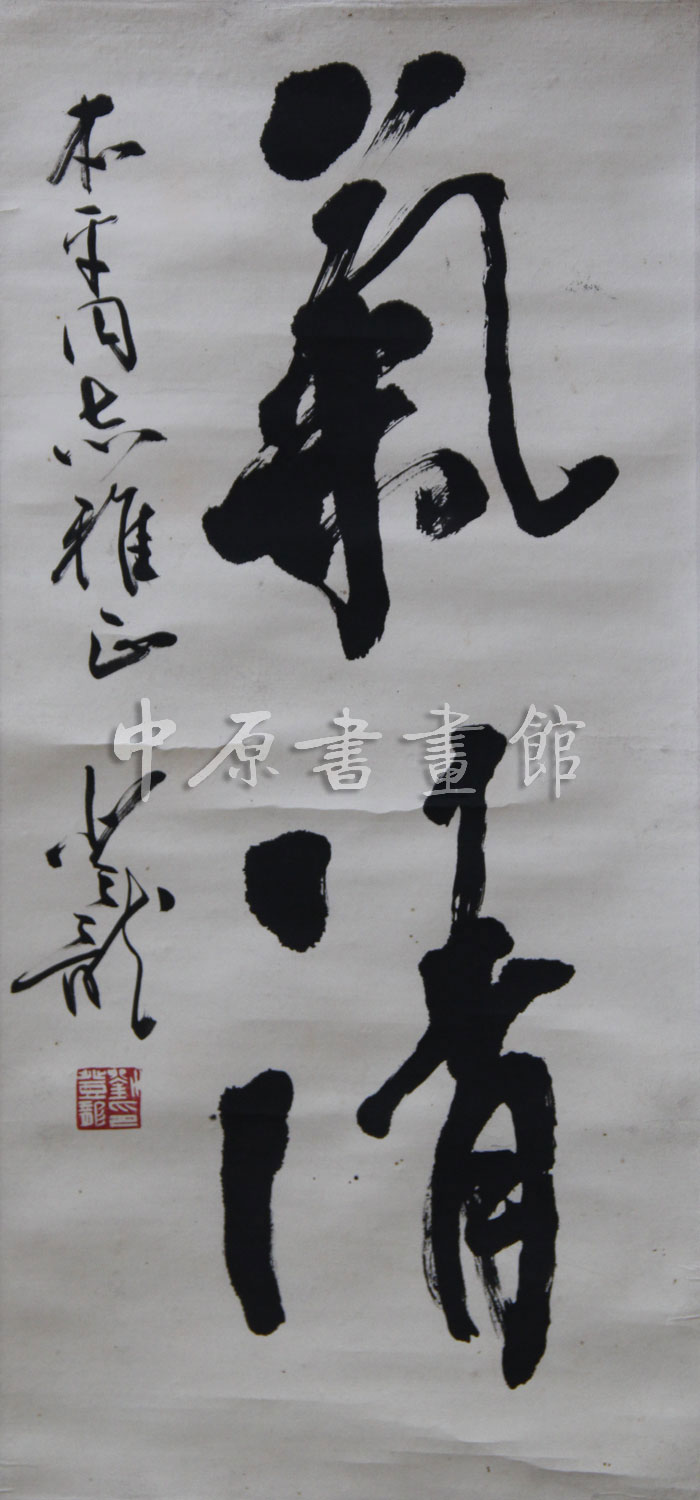 氣清
本平同志雅正
中原書畫館